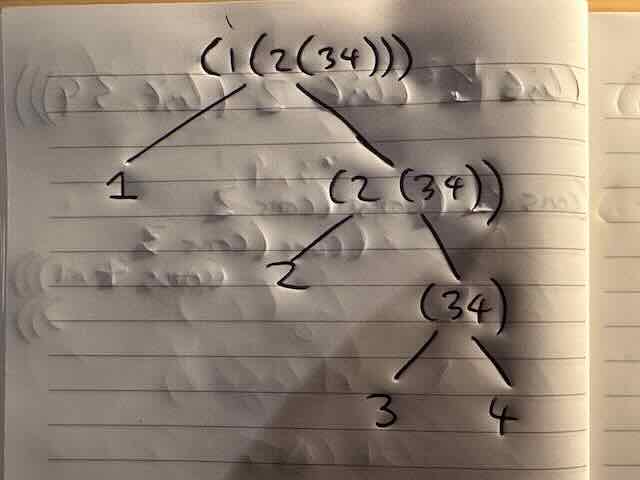 (1(2(34)))
1
(2 (34))
2
(34)
3 4